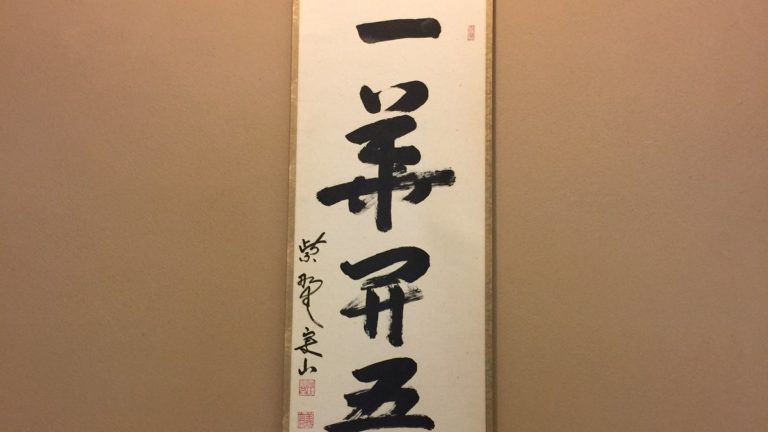 一華開五
紫野実山